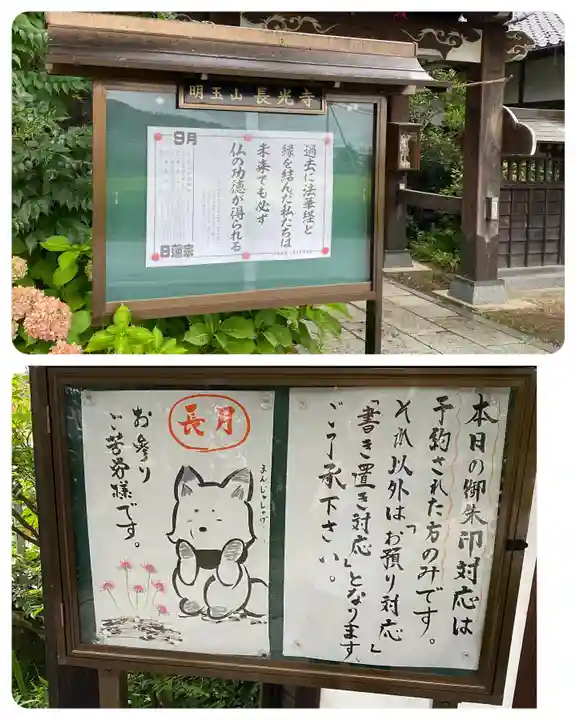 明玉山 長光寺
9月
過去に法華経と
縁を結んだ私たちは
未来でも必ず
仏の功徳が得られる
日蓮宗
本日の御朱印対応は
予約された方のみです。
それ以外は「お預り対応」
「書き置き対応」となります。
ご了承下さい。
長月
まんじゅしゃげ
お参り
ご苦労様です。